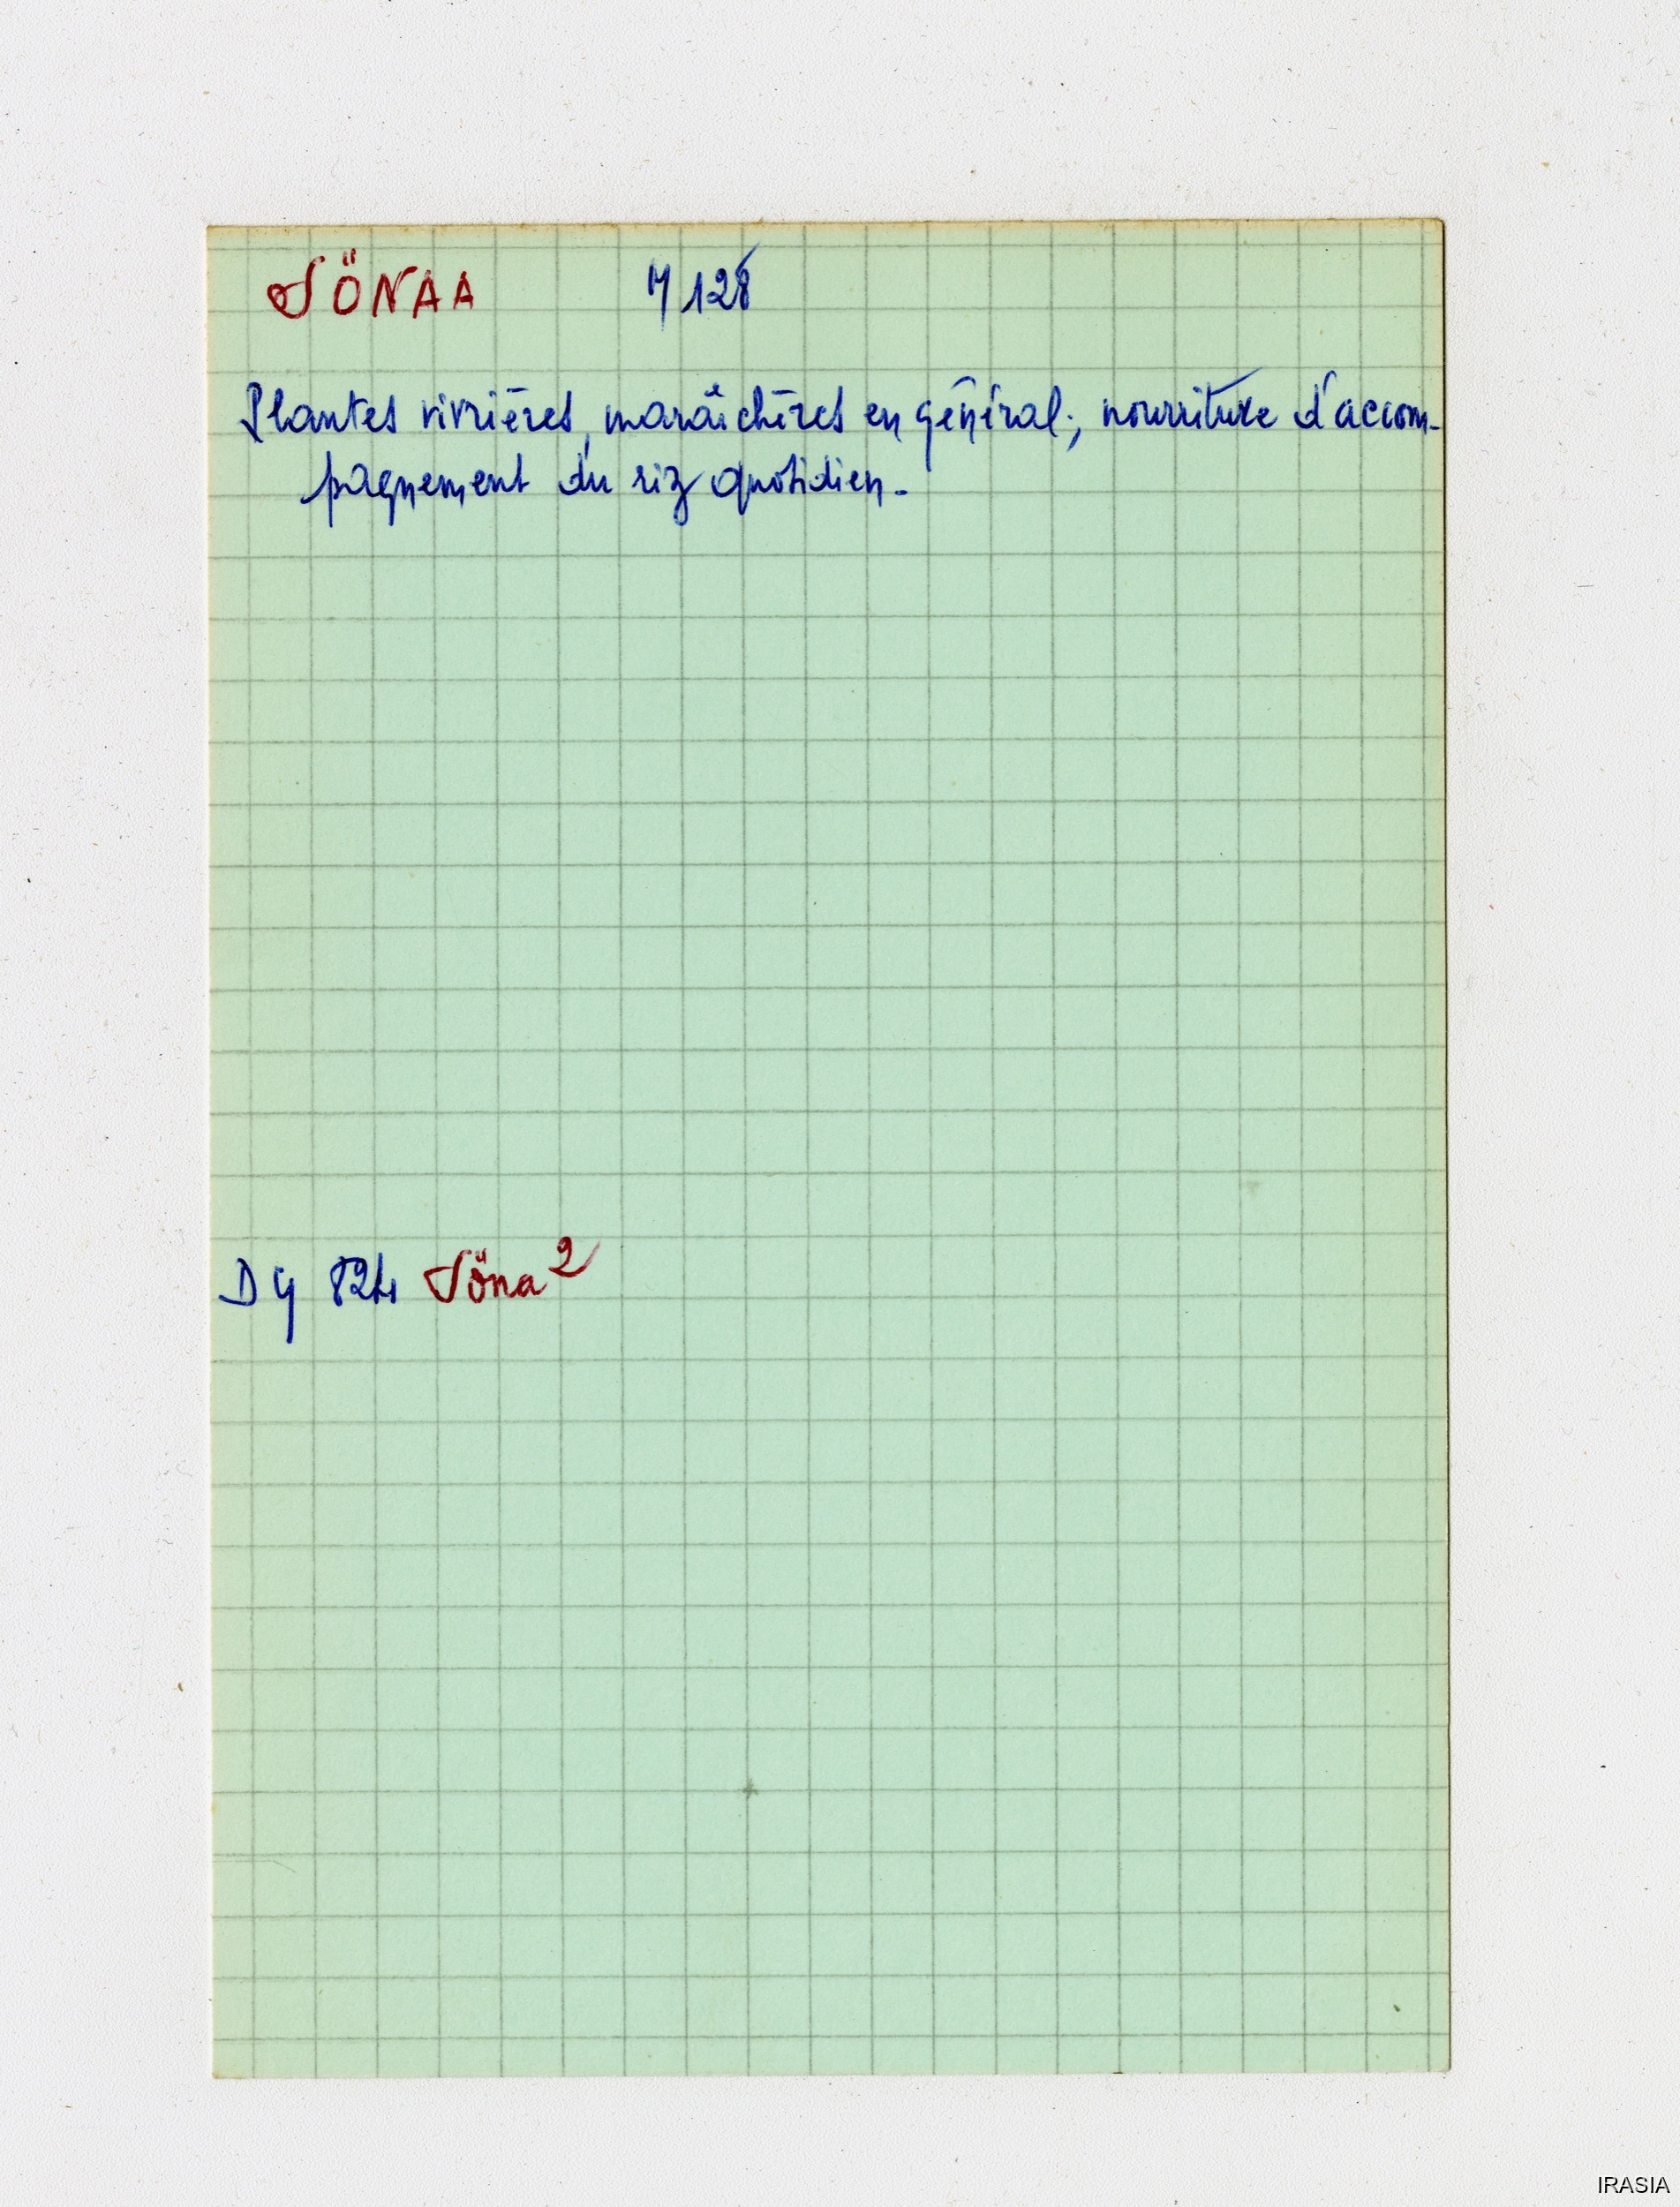 SÖNAA M 128
Plantes vivrières, maraîchères en général; nourriture d'accom-
pagnement du riz quotidien.
D y 824 Söna²
IRASIA